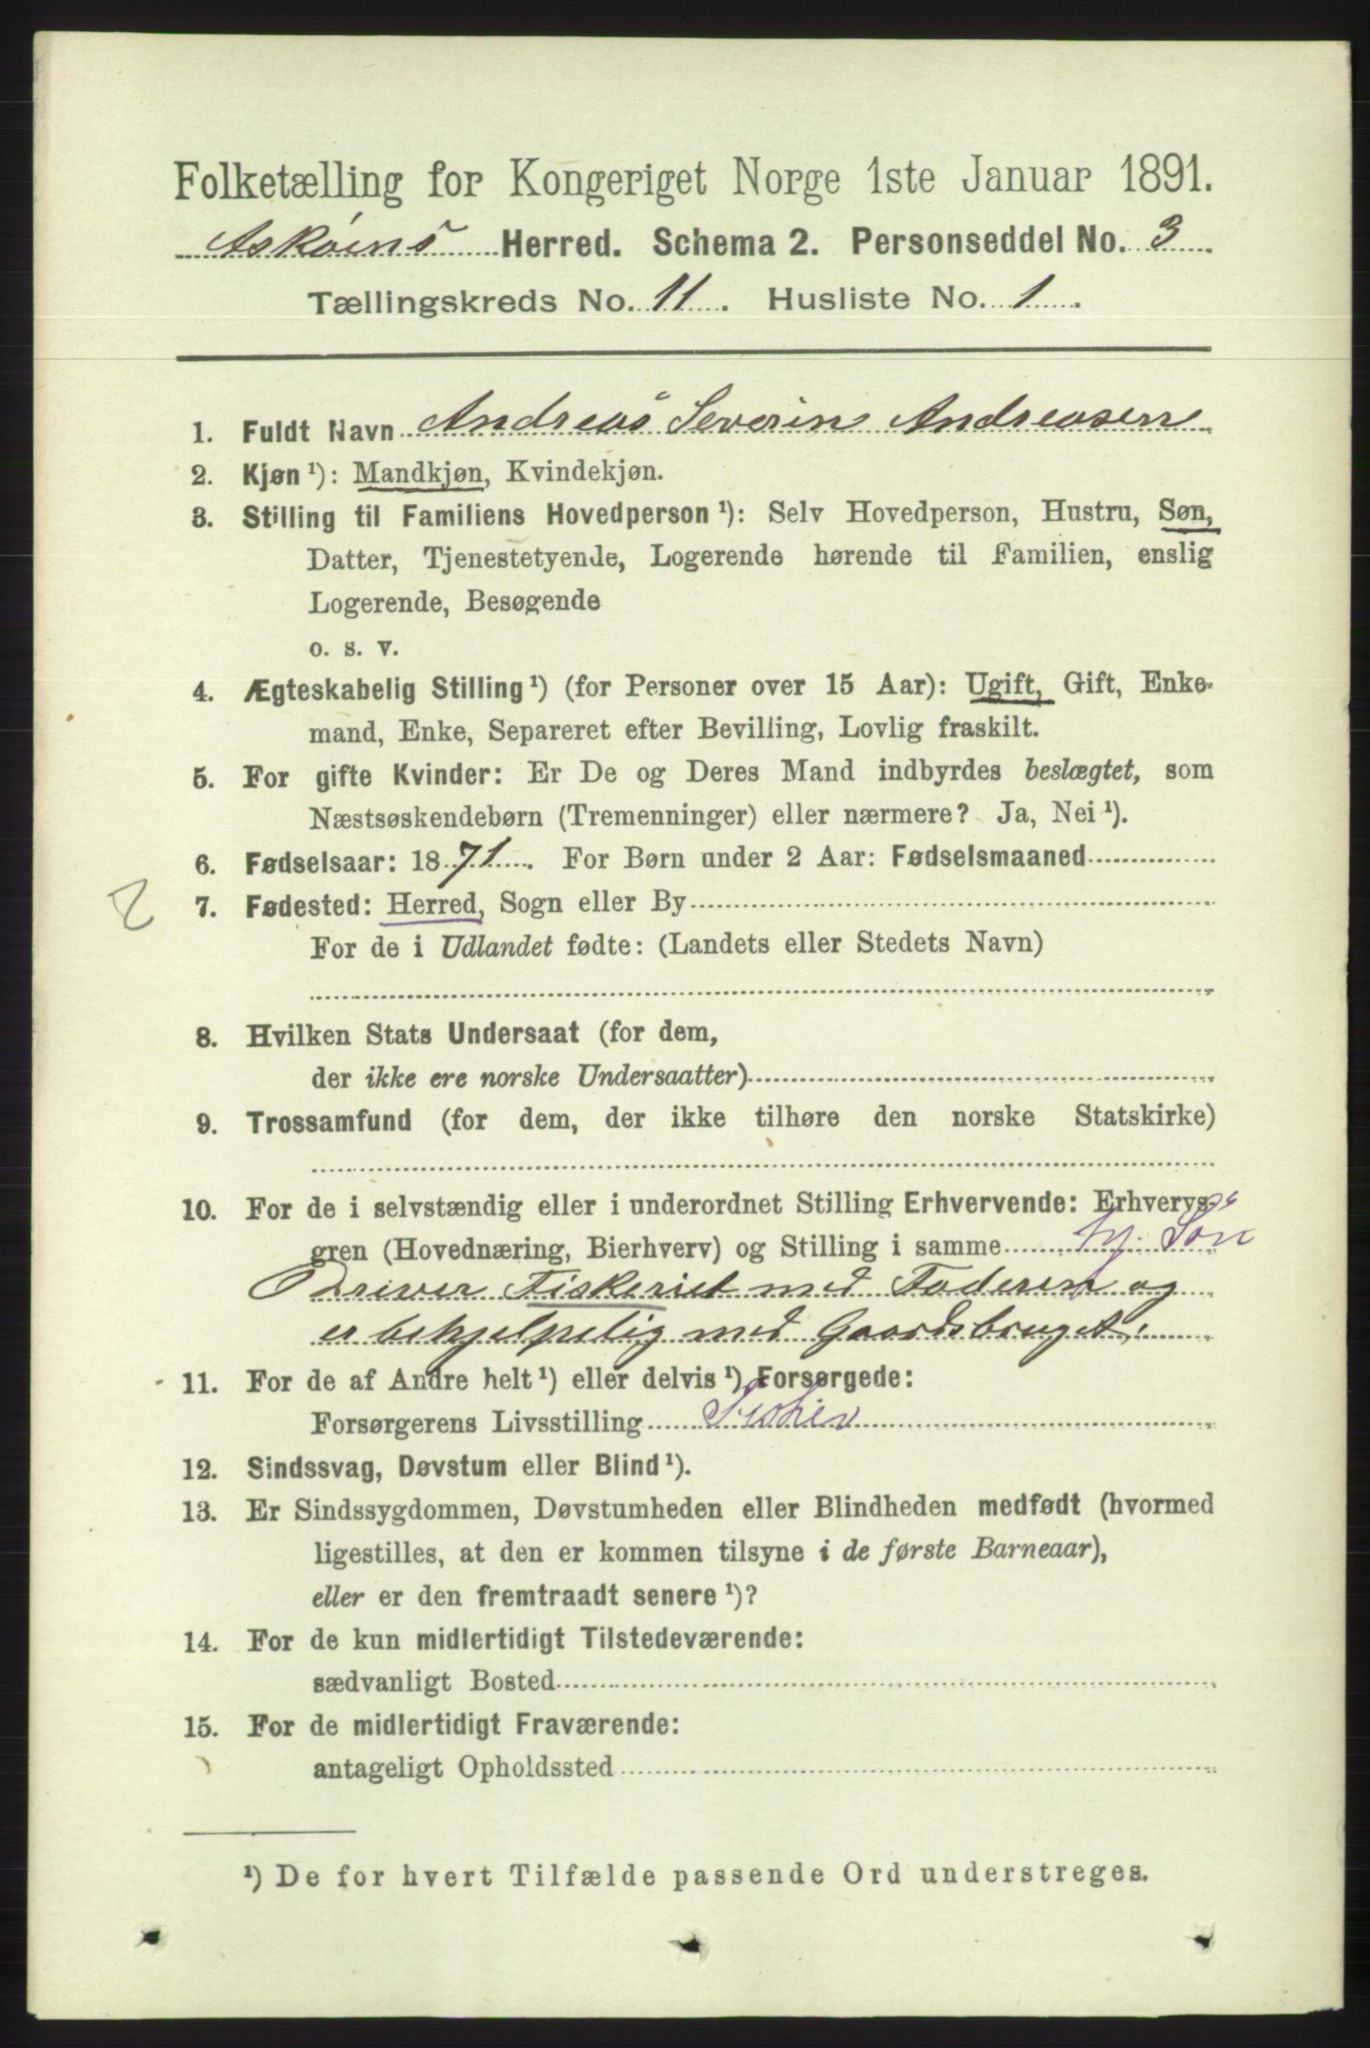 Folketælling for Kongeriget Norge 1ste Januar 1891.
Askøens Herred. Schema 2. Personseddel No. 3
Tællingskreds No. 11. Husliste No. 1.
1. Fuldt Navn Andreas Severin Andreasen
2. Kjøn ¹): Mandkjøn, Kvindekjøn.
3. Stilling til Familiens Hovedperson ¹): Selv Hovedperson, Hustru, Søn,
Datter, Tjenestetyende, Logerende hørende til Familien, enslig
Logerende, Besøgende
o. s. v.
4. Ægteskabelig Stilling ¹) (for Personer over 15 Aar): Ugift, Gift, Enke-
mand, Enke, Separeret efter Bevilling, Lovlig fraskilt.
5. For gifte Kvinder: Er De og Deres Mand indbyrdes beslægtet, som
Næstsøskendebørn (Tremenninger) eller nærmere? Ja, Nei ¹).
6. Fødselsaar: 1871. For Børn under 2 Aar: Fødselsmaaned
7. Fødested: Herred, Sogn eller By
For de i Udlandet fødte: (Landets eller Stedets Navn)
8. Hvilken Stats Undersaat (for dem,
der ikke ere norske Undersaatter)
9. Trossamfund (for dem, der ikke tilhøre den norske Statskirke)
10. For de i selvstændig eller i underordnet Stilling Erhvervende: Erhvervs-
gren (Hovednæring, Bierhverv) og Stilling i samme hj. Søn
Driver Fiskeriet med Faderen og
er behjelpelig med Gaardsbruget.
11. For de af Andre helt ¹) eller delvis ¹) Forsørgede:
Forsørgerens Livsstilling Fisker
12. Sindssvag, Døvstum eller Blind ¹).
13. Er Sindssygdommen, Døvstumheden eller Blindheden medfødt (hvormed
ligestilles, at den er kommen tilsyne i de første Barneaar),
eller er den fremtraadt senere ¹)?
14. For de kun midlertidigt Tilstedeværende:
sædvanligt Bosted
15. For de midlertidigt Fraværende:
antageligt Opholdssted
¹) De for hvert Tilfælde passende Ord understreges.